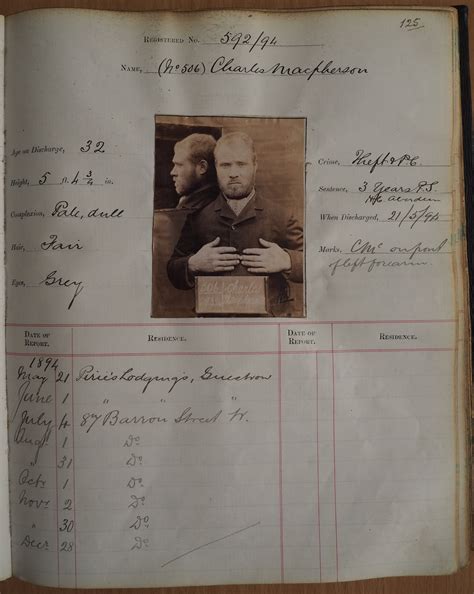 125
REGISTERED No. 592/94
NAME, (No 506) Charles Macpherson
Age on Discharge, 32
Height, 5 ft. 4 3/4 in.
Complexion, Pale, dull
Hair, Fair
Eyes, Grey
Crime, Theft & P.C.
Sentence, 3 Years P.S.
H.C. Aberdeen
When Discharged, 21/5/94
Marks. CMc on front
of left forearm.
DATE OF REPORT. RESIDENCE. DATE OF REPORT. RESIDENCE.
1894
May 21 Pirie's Lodgings, Guestrow
June 1 " "
July 4 87 Barron Street W.
Augt 1 Do
" 31 Do
Octr 1 Do
Novr 2 Do
" 30 Do
Decr 28 Do